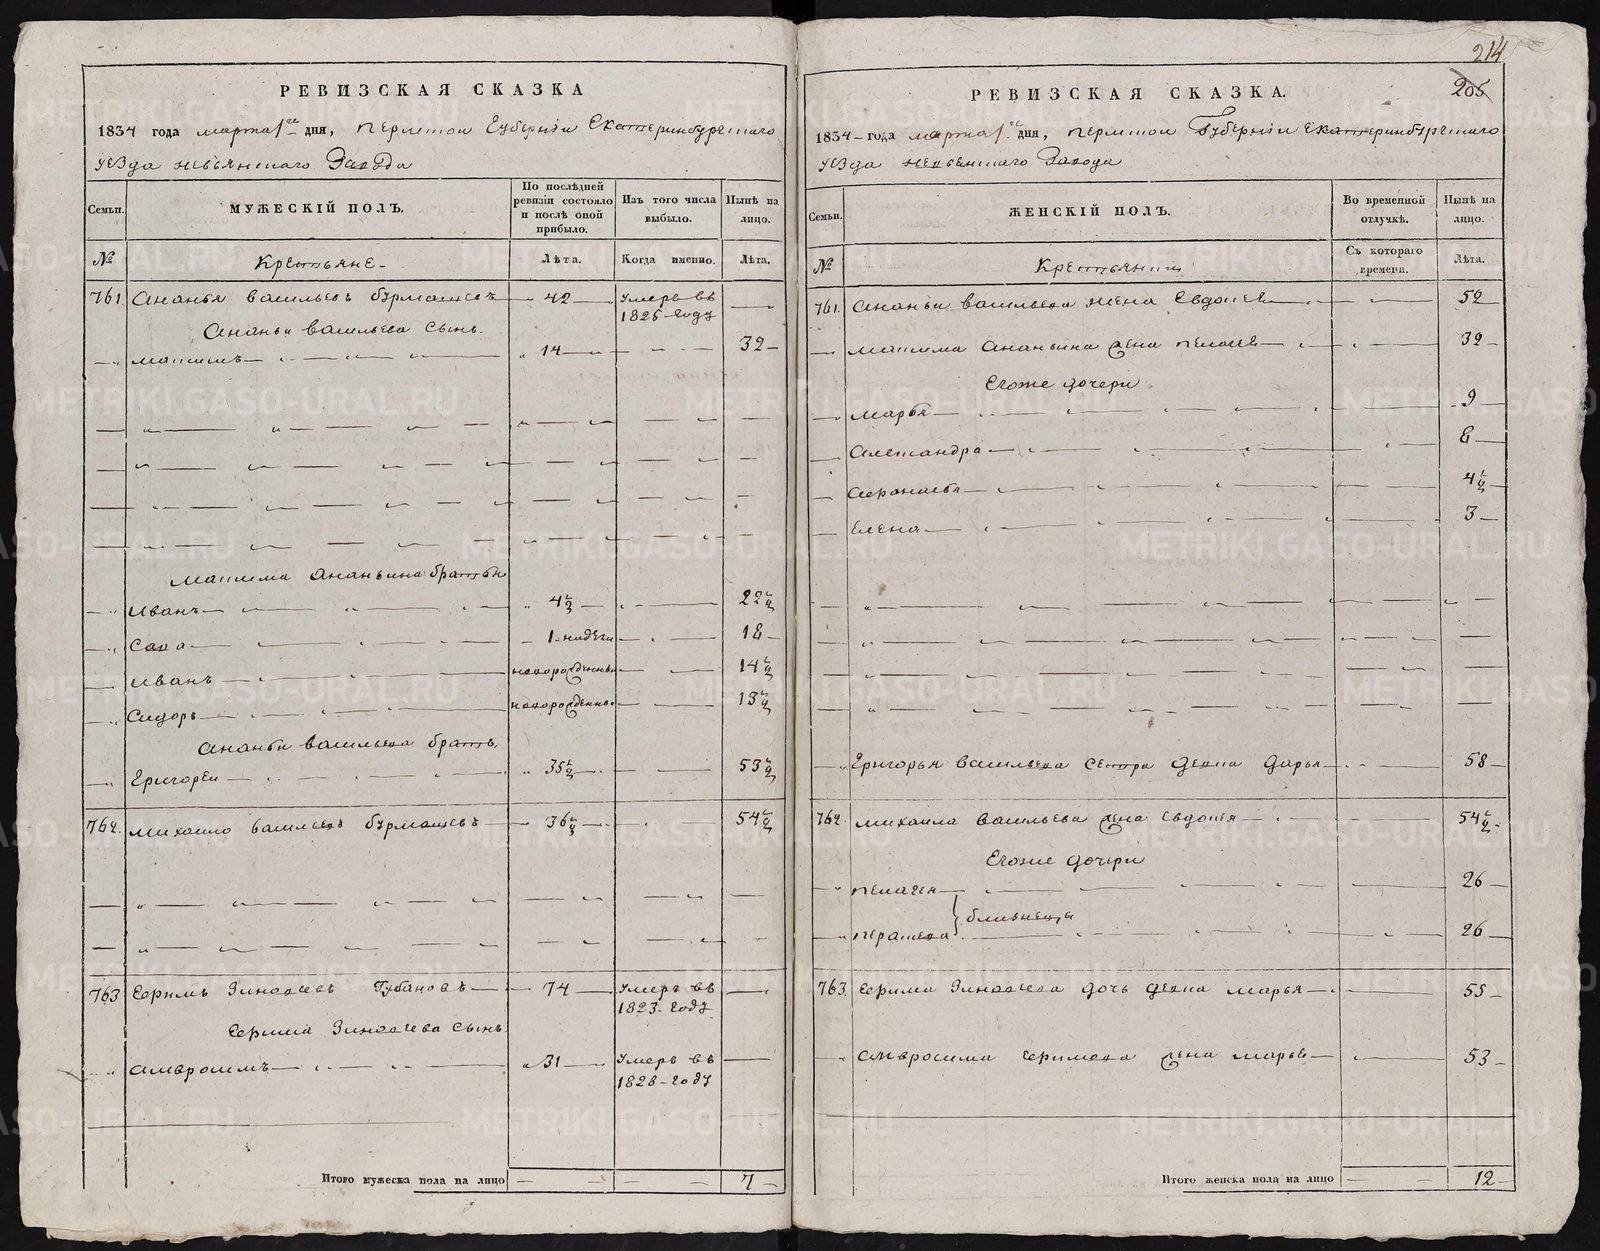 214
205
РЕВИЗСКАЯ СКАЗКА
1834 года марта 1го дня, Пермской Губерніи Екатеринбургскаго
уезда Невьянскаго Завода
Семьи.
МУЖЕСКІЙ ПОЛЪ.
По послѣдней ревизіи состояло и послѣ оной прибыло.
Изъ того числа выбыло.
Нынѣ на лицо.
№
Крестьяне
Лѣта.
Когда именно.
Лѣта.
761. Ананья Васильевъ Бурмашевъ 42 умеръ въ 1825 году
Ананьи Васильева сынъ
Максимъ 14 32
Максима Ананьина братья
Иванъ 4½ 22½
Сава 1 недели 18
Иванъ новорожденный 14½
Сидоръ новорожденный 13½
Ананьи Васильева братъ
Григорей 35½ 53½
762. Михайло Васильевъ Бурмашевъ 36½ 54½
763 Ефимъ Зиновьевъ Губановъ 74 умеръ въ 1823 году
Ефима Зиновьева сынъ
Амвросимъ 31 умеръ въ 1828 году
Итого мужеска пола на лицо 7
РЕВИЗСКАЯ СКАЗКА.
1834 года марта 1го дня, Пермской Губерніи Екатеринбургскаго
уезда Невьянскаго Завода
Семьи.
ЖЕНСКІЙ ПОЛЪ.
Во временной отлучкѣ.
Нынѣ на лицо.
№
Крестьянки
Съ котораго времени.
Лѣта.
761. Ананьи Васильева жена Евдокея 52
Максима Ананьина жена Пелагея 32
Егоже дочери
Марья 9
Александра 8
Афанасья 4½
Елена 3
Григорья Васильева сестра девка Дарья 58
762 Михаила Васильева жена Евдокея 54½
Егоже дочери
Пелагея 26
близнецы
Парасковья 26
763. Ефима Зиновьева дочь девка Марья 55
Амвросима Ефимова жена Марья 53
Итого женска пола на лицо 12
METRIKI.GASO-URAL.RU